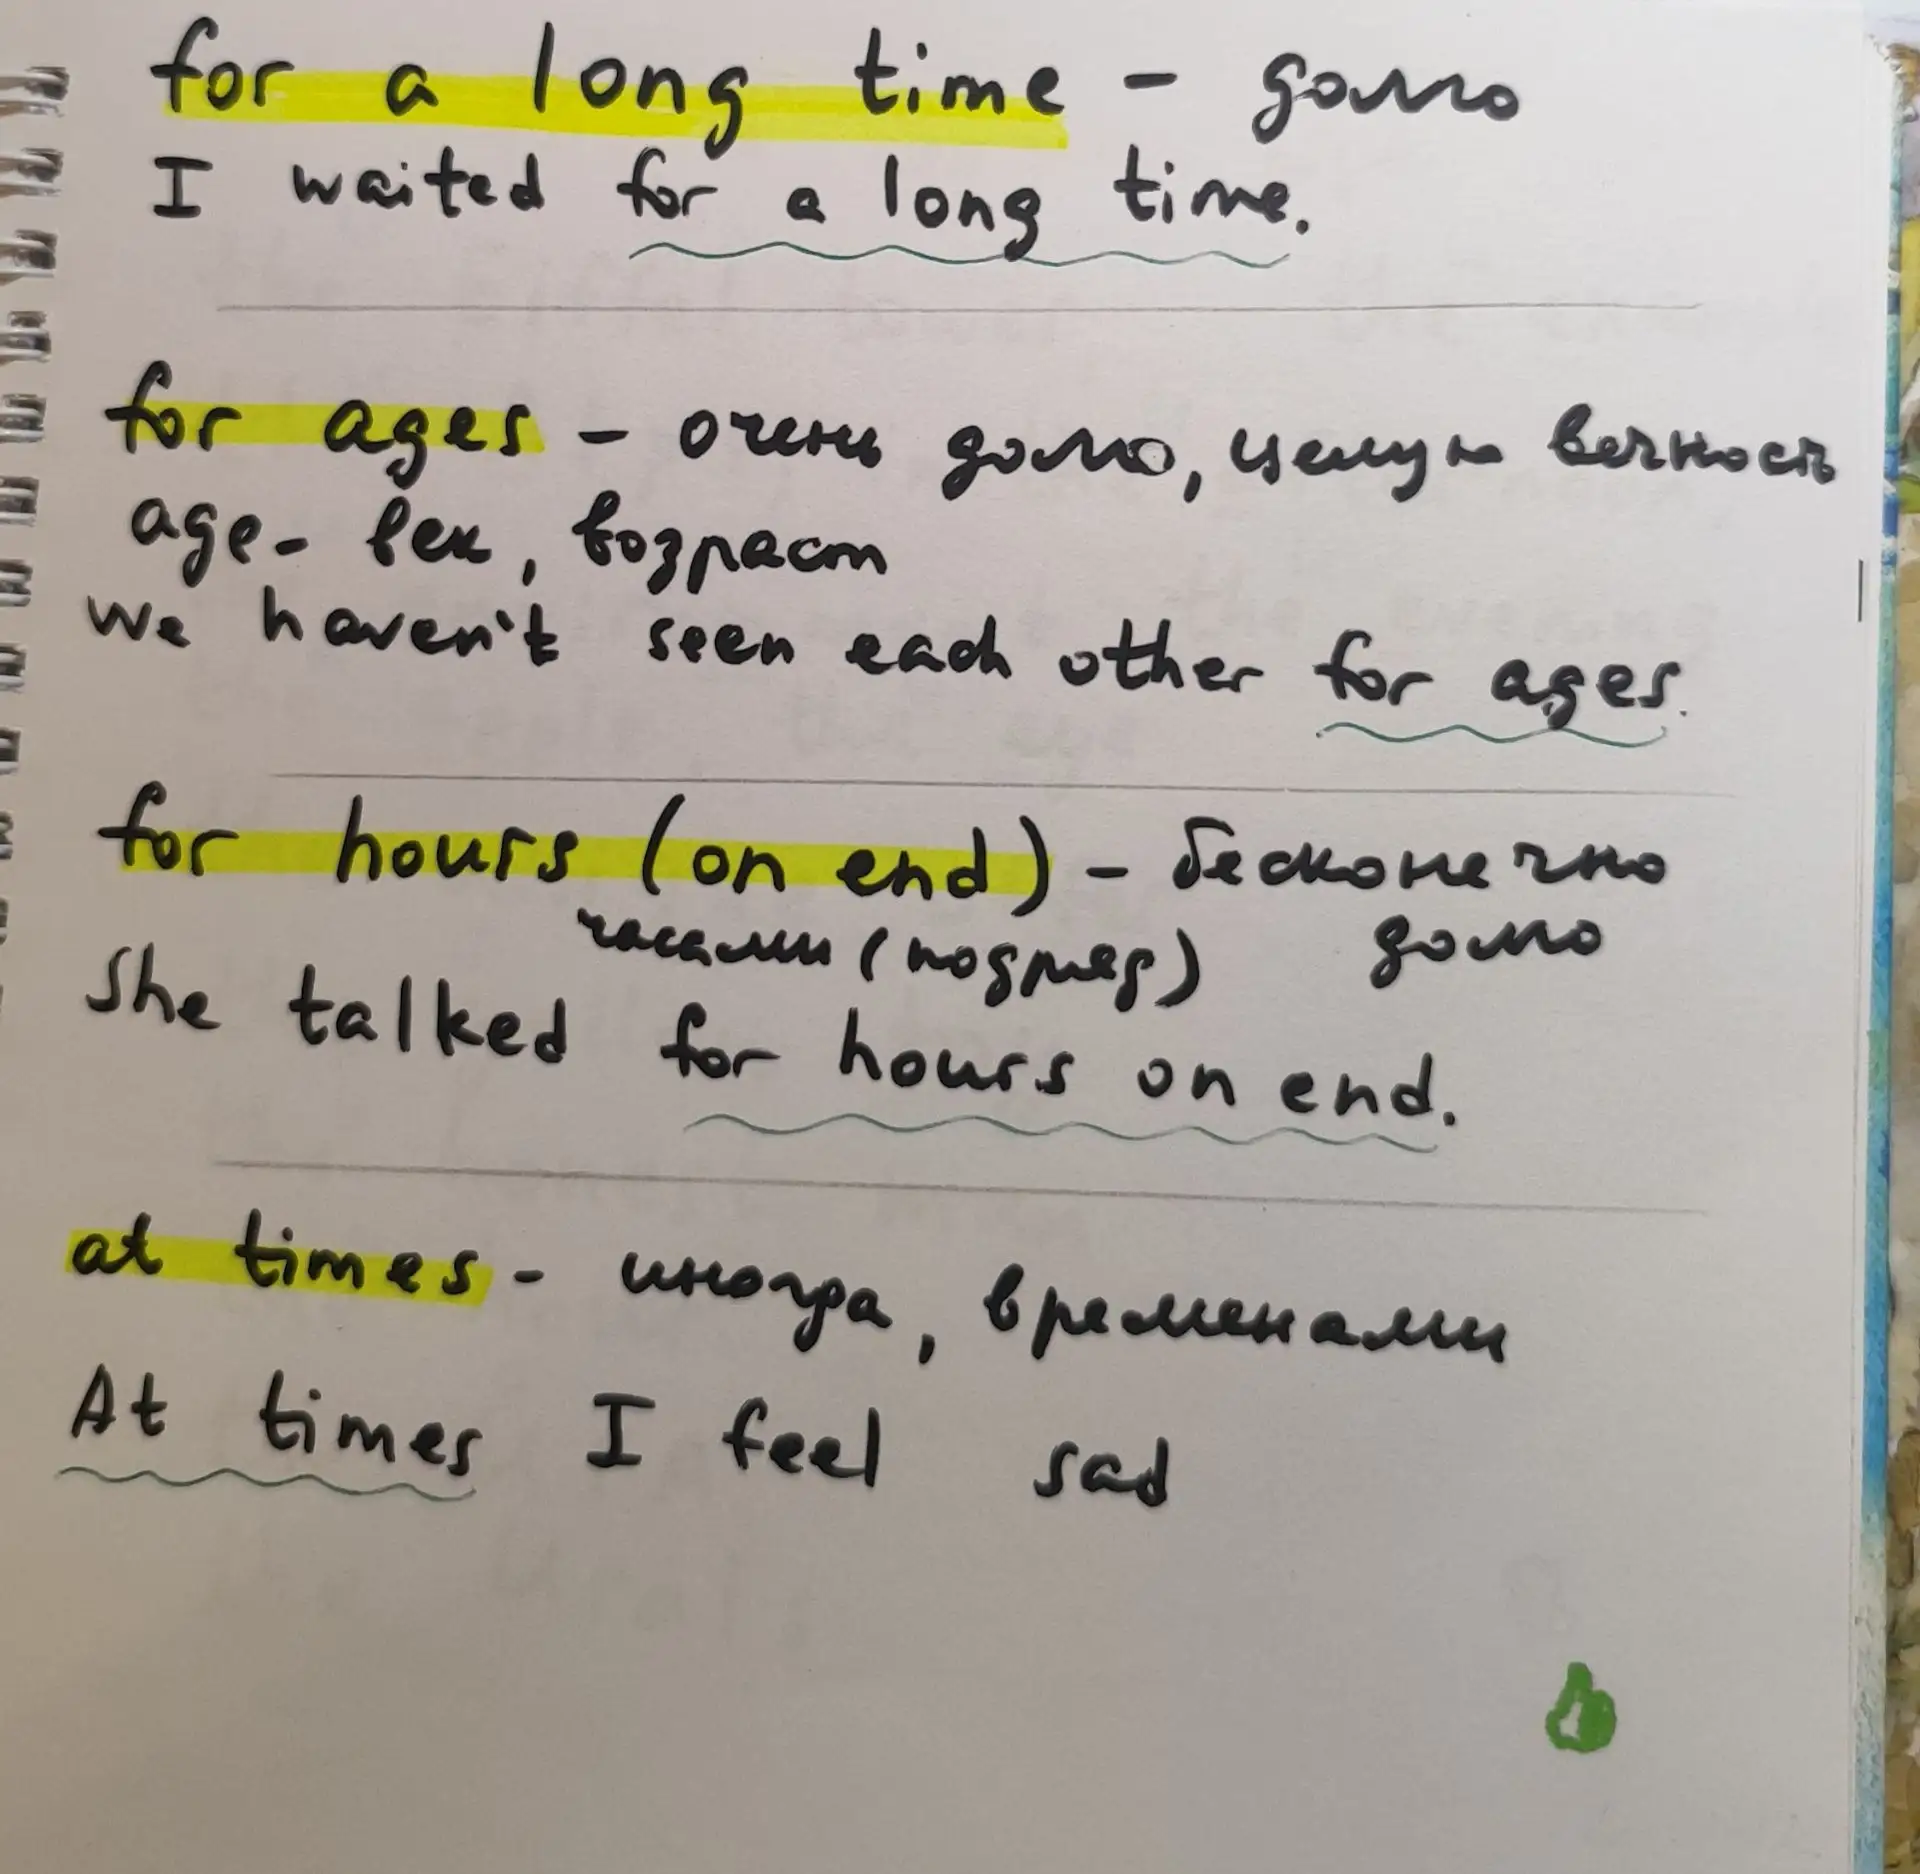 for a long time - долго
I waited for a long time.
for ages - очень долго, целую вечность
age - век, возраст
We haven't seen each other for ages.
for hours (on end) - бесконечно
часами (подряд) долго
She talked for hours on end.
at times - иногда, временами
At times I feel sad